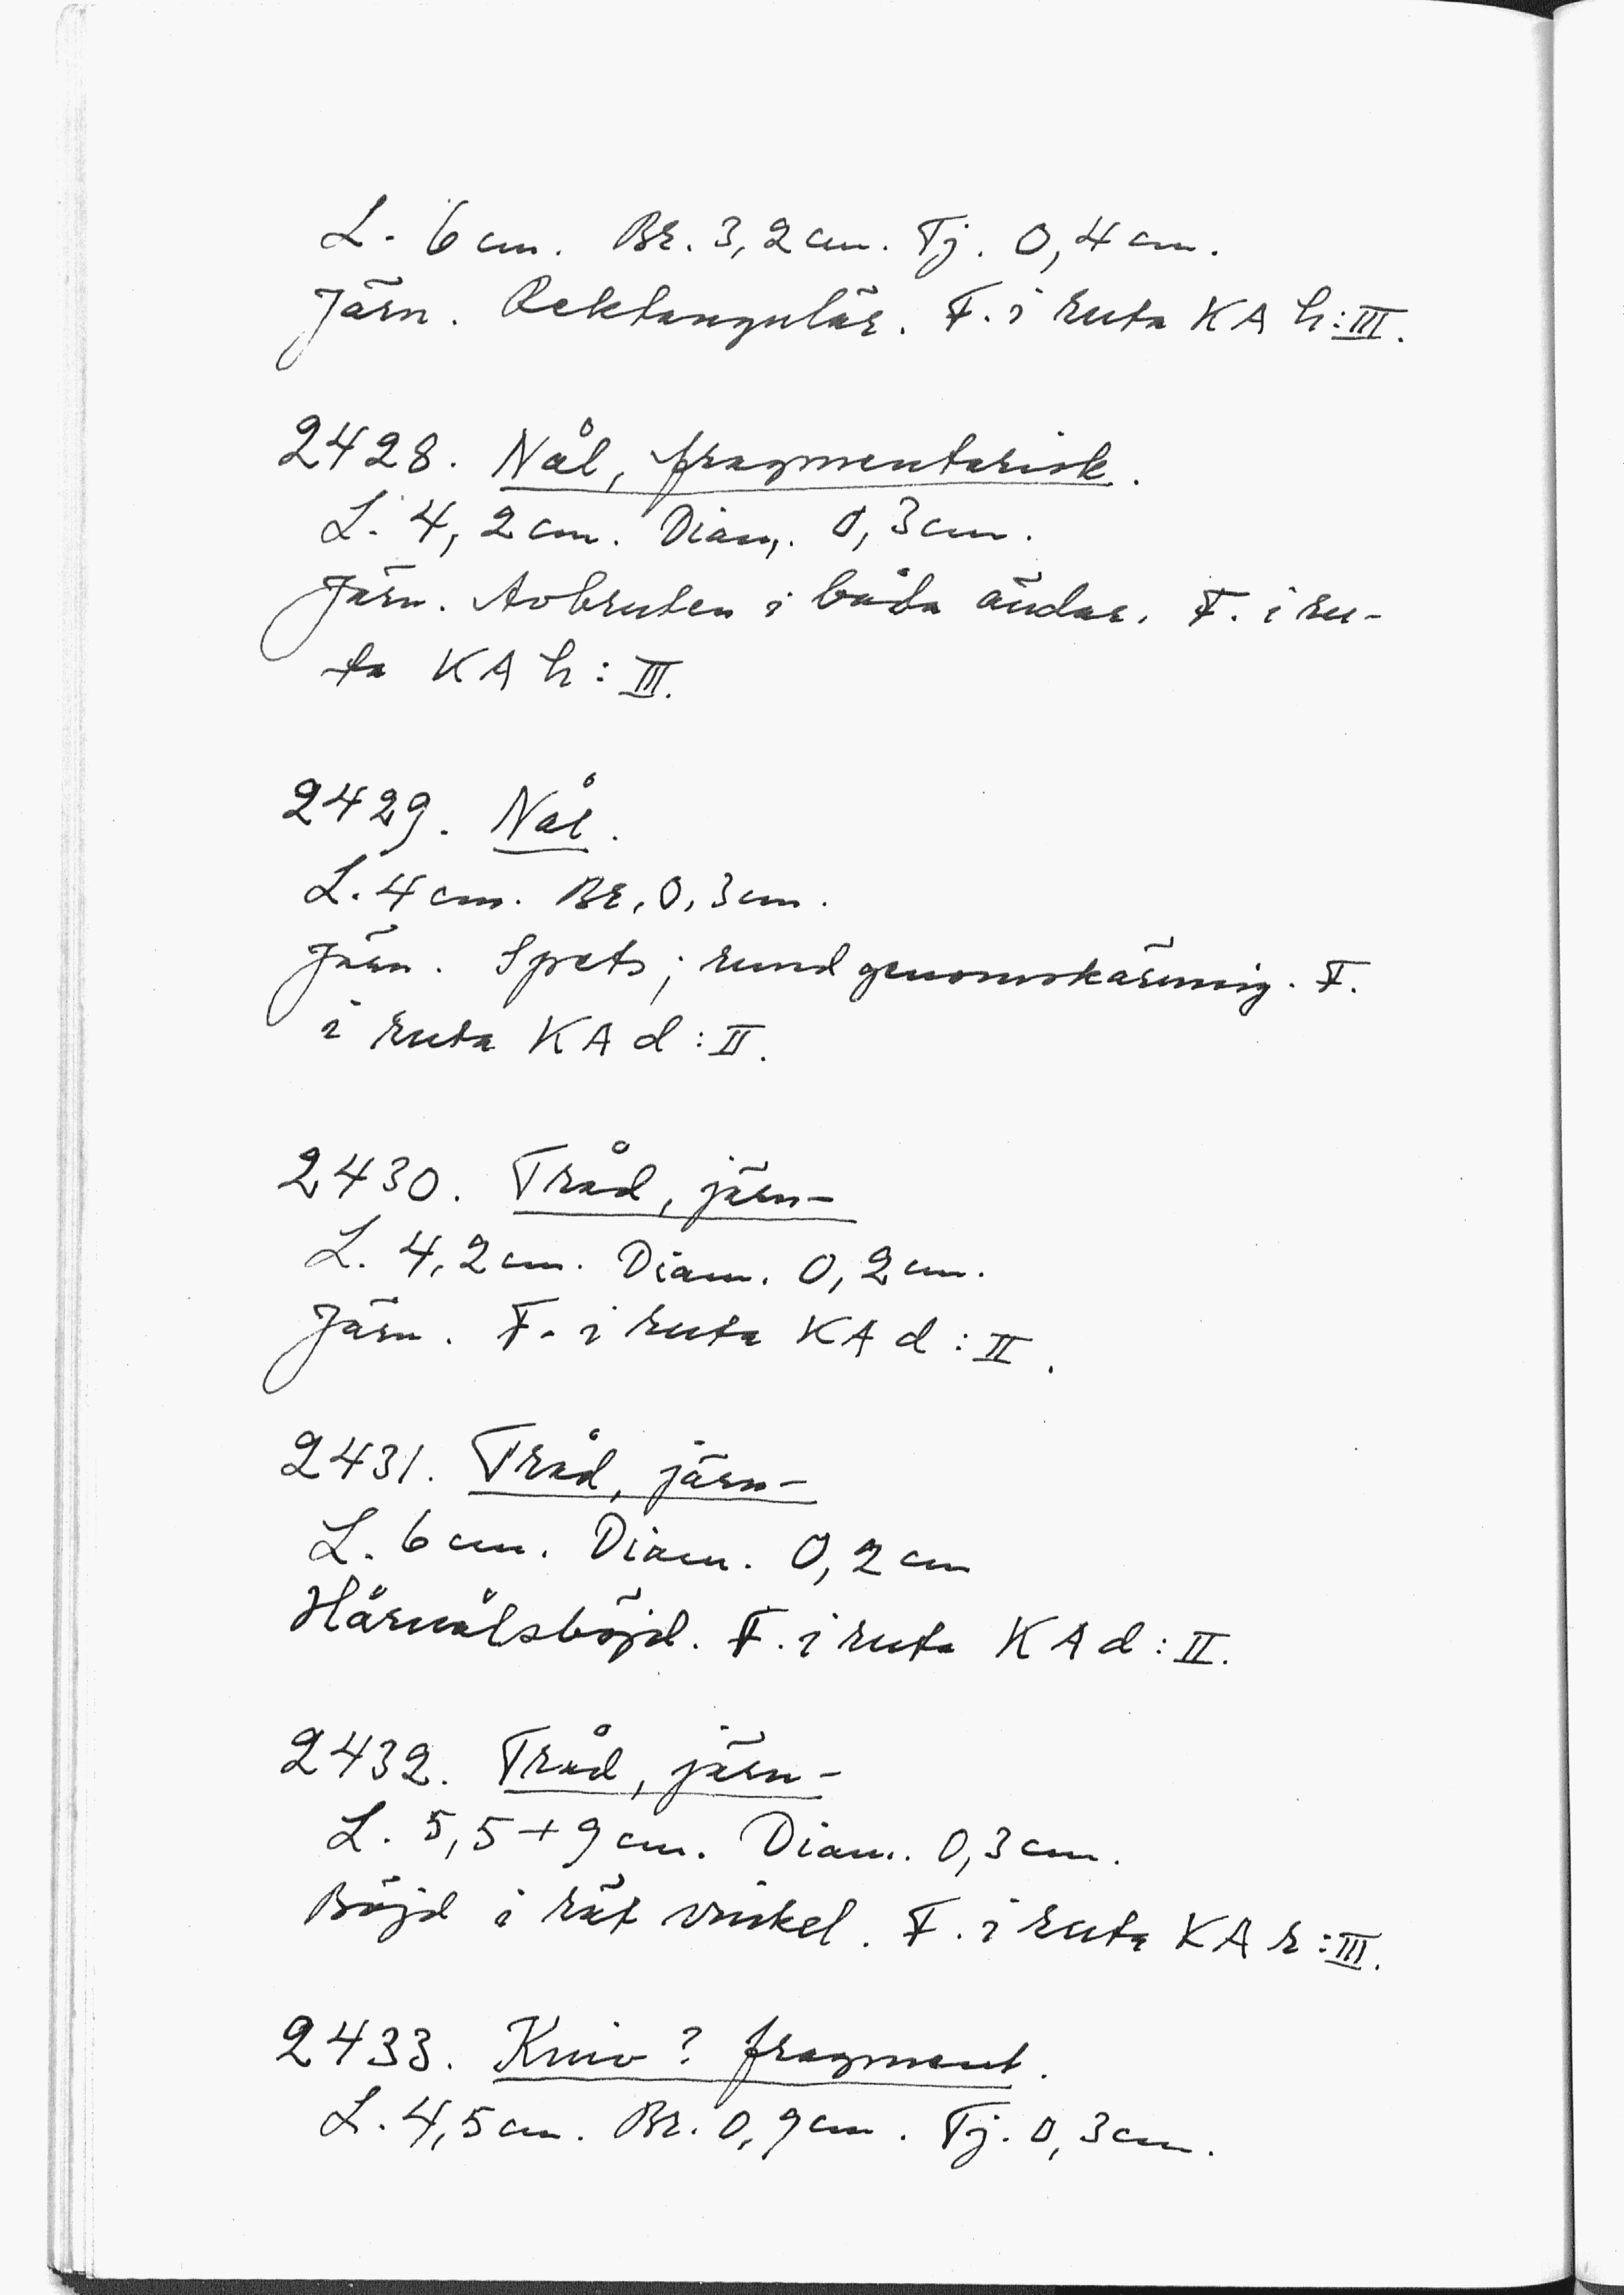 L. 6 cm. Br. 3,2 cm. Tj. 0,4 cm.
Järn. Rektangulär. F. i ruta KA h:III.
2428. Nål, fragmentarisk.
L. 4,2 cm. Diam. 0,3 cm.
Järn. Avbruten i båda ändar. F. i ru-
ta KA h:III.
2429. Nål.
L. 4 cm. Br. 0,3 cm.
Järn. Spets; rund genomskärning. F.
i ruta KA d:II.
2430. Tråd, järn-
L. 4,2 cm. Diam. 0,2 cm.
Järn. F. i ruta KA d:II.
2431. Tråd, järn-
L. 6 cm. Diam. 0,2 cm
Hårnålsböjd. F. i ruta KA d:II.
2432. Tråd, järn-
L. 5,5+9 cm. Diam. 0,3 cm.
Böjd i rät vinkel. F. i ruta KA r:III.
2433. Kniv? fragment.
L. 4,5 cm. Br. 0,9 cm. Tj. 0,3 cm.